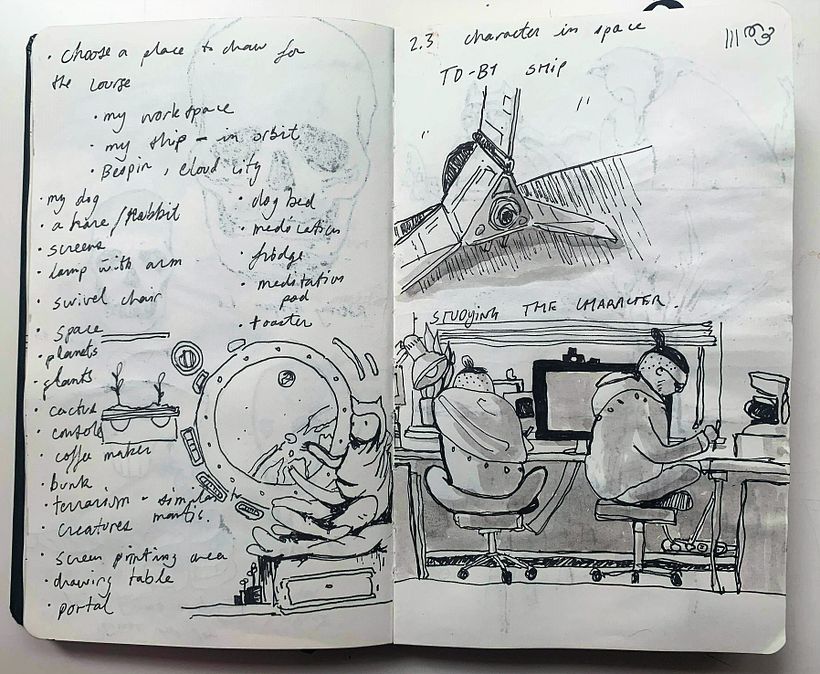 • Choose a place to draw for
the course
• my workspace
• my ship - in orbit
• Bespin, cloud city
• my dog
• a hare / Rabbit
• screens
• lamp with arm
• swivel chair
• space
• planets
• plants
• cactus
• console
• coffee maker
• bunk
• terrarium - similar to
creatures mantis.
• screen printing area
• drawing table
• portal
• dog bed
• medication
• fridge
• meditation
pod
• toaster
2.3 character in space
TO-B1 SHIP
STUDYING THE CHARACTER.